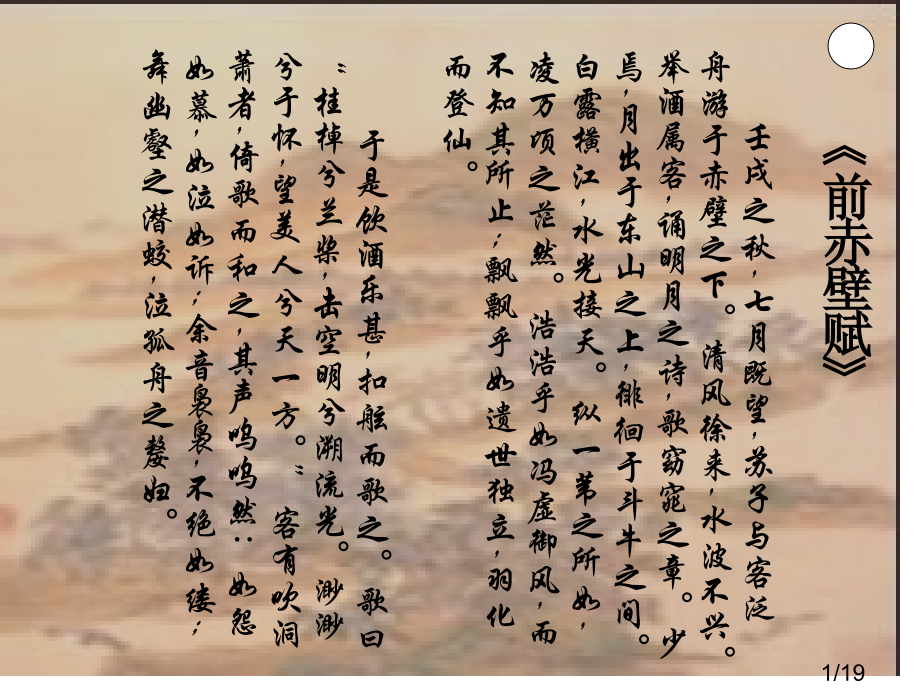 《前赤壁赋》
壬戌之秋,七月既望,苏子与客泛
舟游于赤壁之下。清风徐来,水波不兴。
举酒属客,诵明月之诗,歌窈窕之章。少
焉,月出于东山之上,徘徊于斗牛之间。
白露横江,水光接天。纵一苇之所如,
凌万顷之茫然。浩浩乎如冯虚御风,而
不知其所止;飘飘乎如遗世独立,羽化
而登仙。
于是饮酒乐甚,扣舷而歌之。歌曰
:“桂棹兮兰桨,击空明兮溯流光。渺渺
兮于怀,望美人兮天一方。”客有吹洞
萧者,倚歌而和之,其声呜呜然:如怨
如慕,如泣如诉;余音袅袅,不绝如缕;
舞幽壑之潜蛟,泣孤舟之嫠妇。
1/19